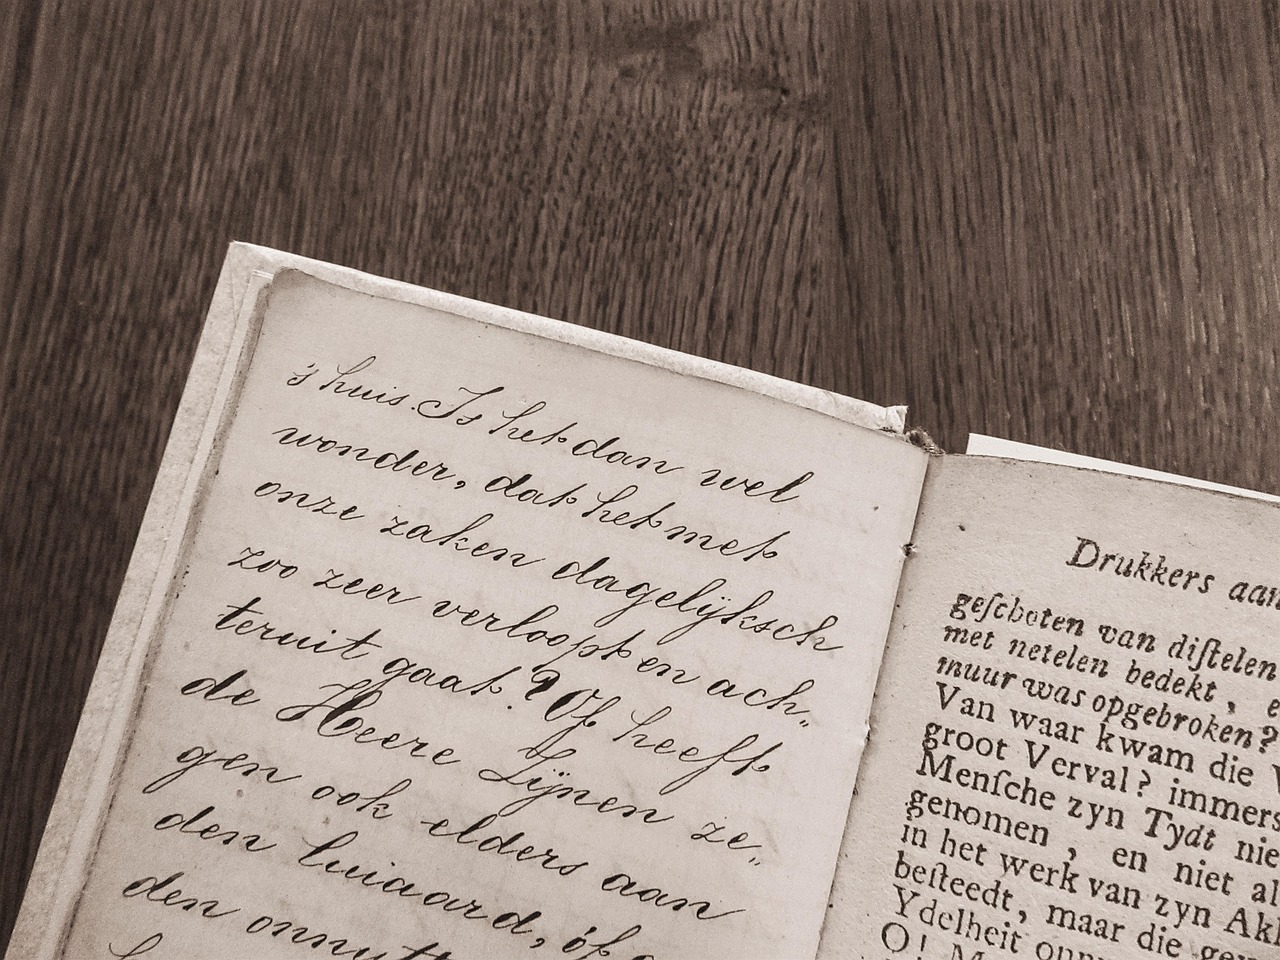 's huis. Is het dan wel
wonder, dat het met
onze zaken dagelijksch
zoo zeer verloopt en ach„
teruit gaat? Of heeft
de Heere Zijnen ze„
gen ook elders aan
den luiaard, óf
den
Drukkers aan
geſchoten van diſtelen
met netelen bedekt, e
muur was opgebroken?
Van waar kwam die V
groot Verval? immers
Menſche zyn Tydt nie
genomen, en niet al
in het werk van zyn Akk
beſteedt, maar die gew
Ydelheit
O!